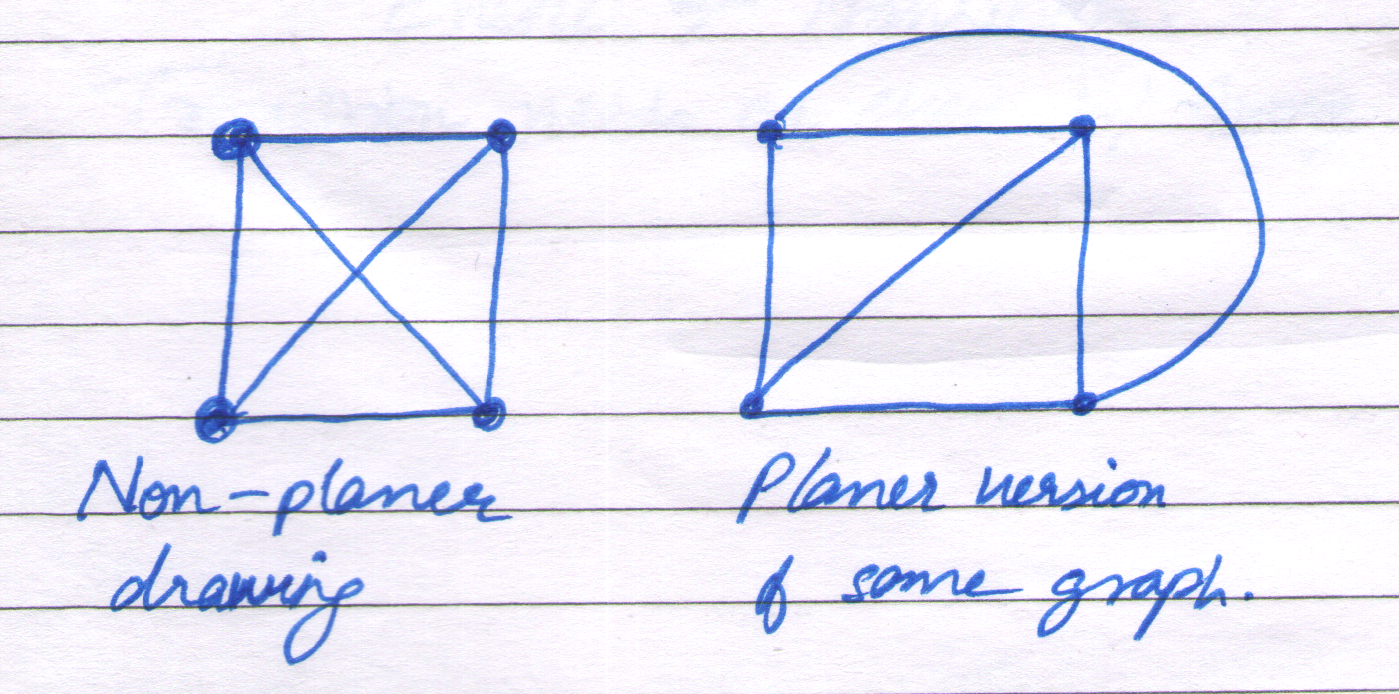 Non-planer
drawing
Planer version
of same graph.